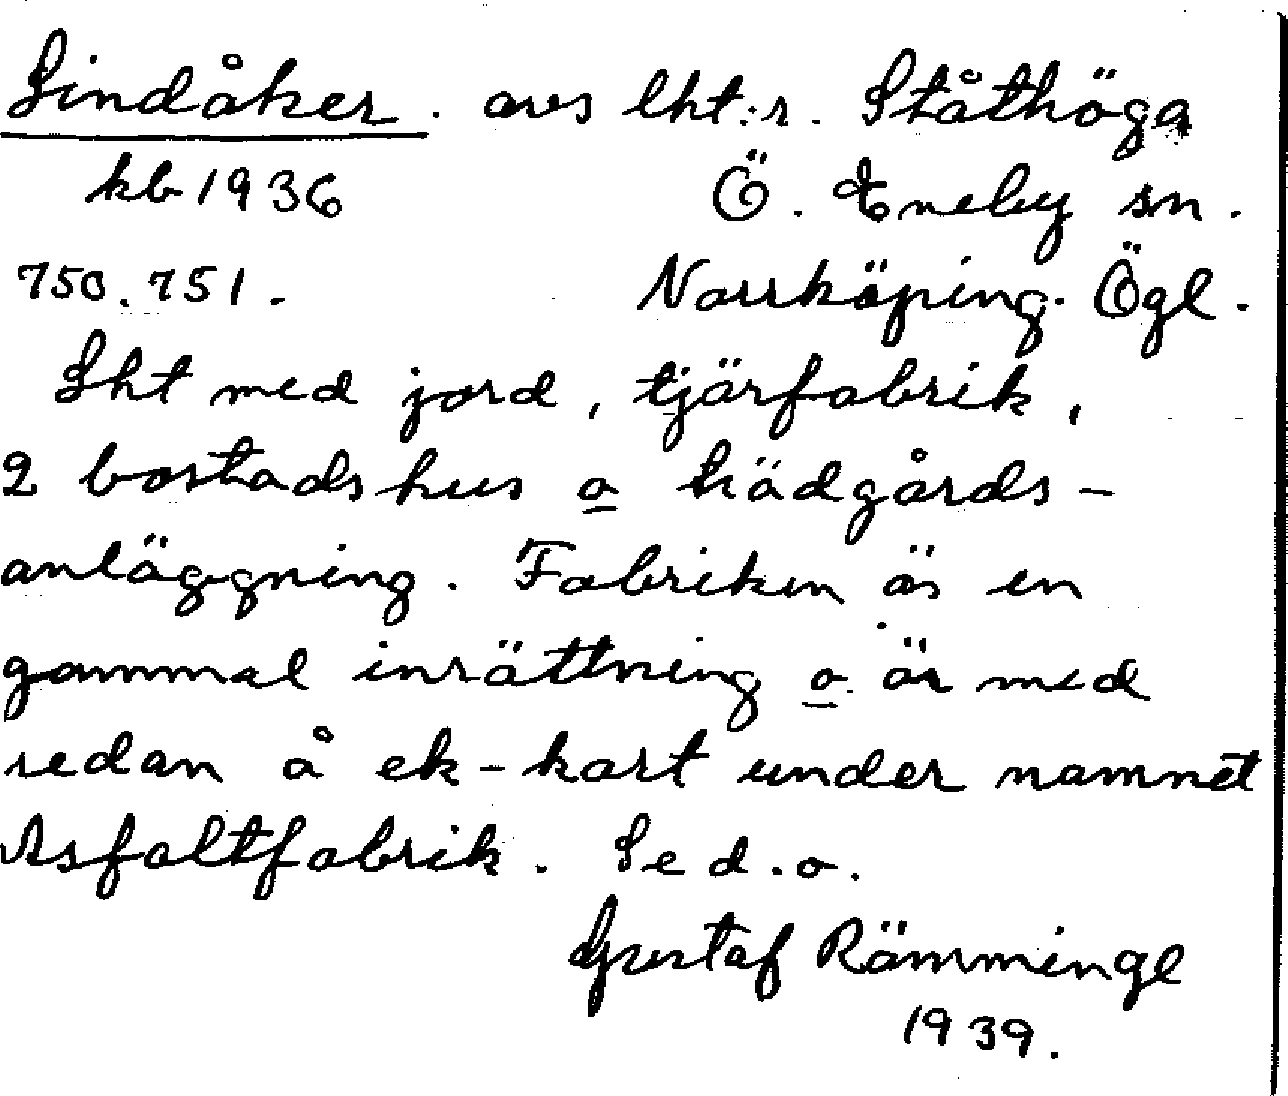 Lindåker. avs lht:r. Ståthöga
kb 1936 Ö. Eneby sn.
750. 751. Norrköping. Ögl.
Lht med jord, tjärfabrik,
2 bostadshus o trädgårds-
anläggning. Fabriken är en
gammal inrättning o. är med
redan å ek-kart under namnet
Asfaltfabrik. Se d.o.
Gustaf Rämminge
1939.